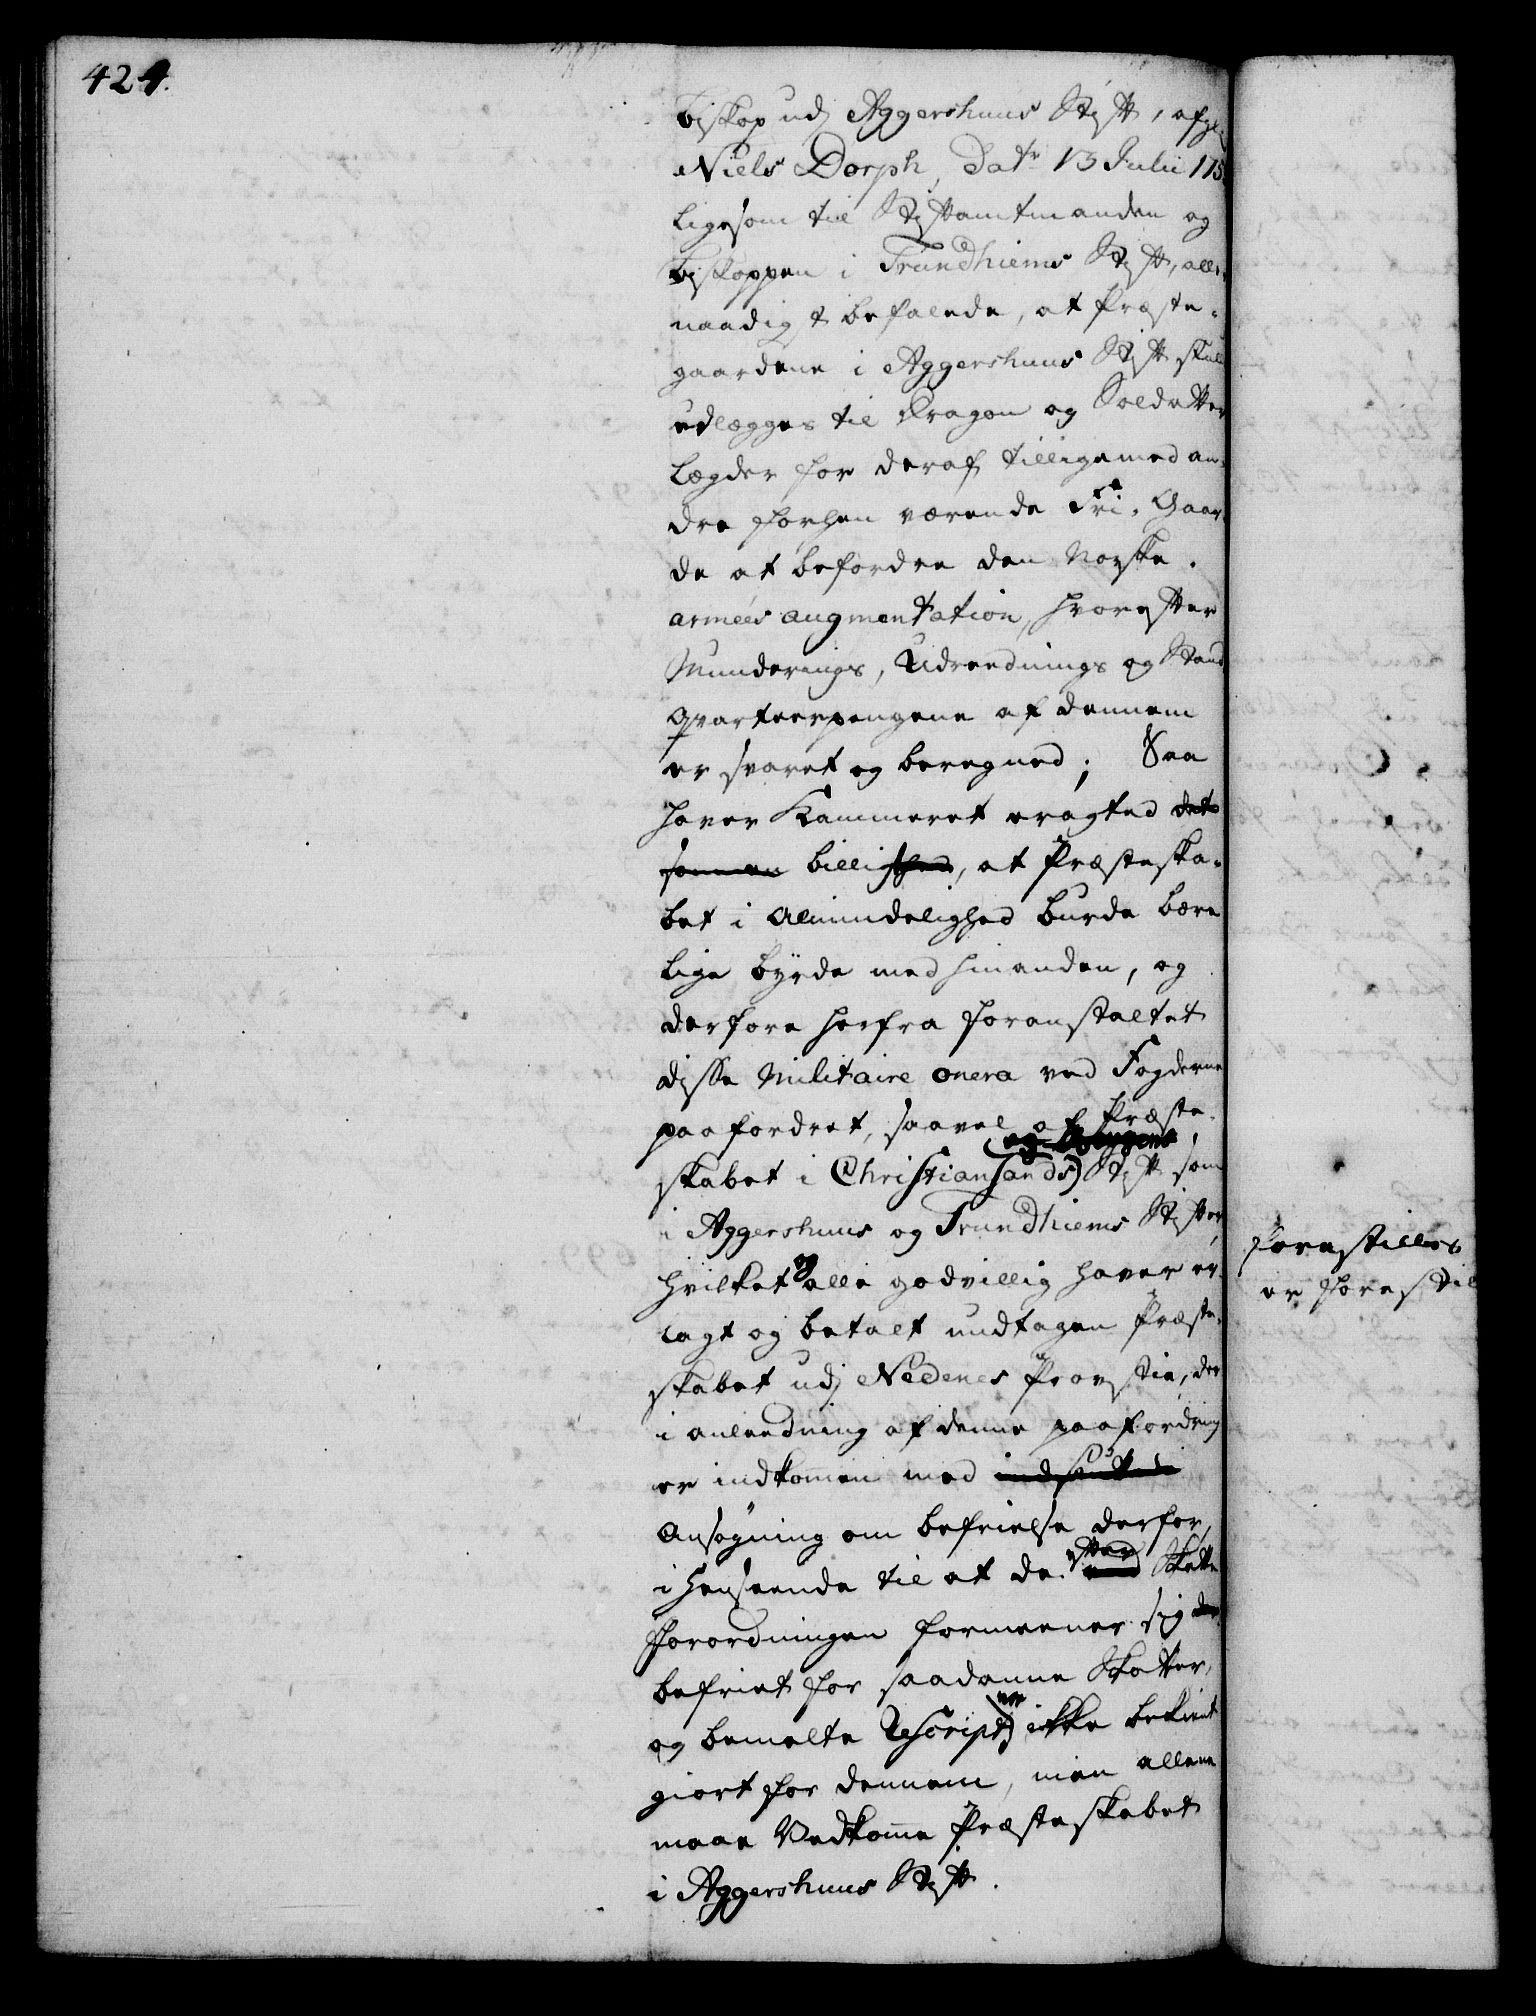 424.
Biskop udj Aggershuus Stift, afg.
Niels Dorph, Datr 13 Julii 175
ligesom til Stiftamtmanden og
Biskoppen i Trundhiems Stift, aller
naadigst befalede, at Præste-
gaardene i Aggershuus Stift skulle
udlægges til Dragon og Soldatter
Lægder for deraf tilligemed an-
dre forhen værende Frie Gaar-
de at befordre den Norske
armées augmentation, hvorefter
Munderings, Udreednings og Stand
Qvarteerpengene af dennem
er svaret og beregned; Saa
haver Kammeret eragted det
sammen billighed, at Præsteska-
bet i Almindelighed burde bære
lige byrde med hinanden, og
derfore herfra foranstaltet
disse Militaire onera ved Fogderne
paafordret, saavel af Præste-
og Bergens
skabet i Christiansands Stift som
i Aggershuus og Trundhiems Stifter,
hvilket og alle godvillig haver er-
lagt og betalt undtagen Præste-
skabet udj Nedenes Provstie, der
i anleedning af denne paafordring
er indkommen med
Ansøgning om befrielse derfor,
i henseende til at de efter Skatte
Forordningen formeener sig
befriet for saadanne Skatter,
og bemelte Rescript er ikke bekient
giort for dennem, men allene
maae Vedkomme Præsteskabet
i Aggershuus Stift.
Forestilles
er forestil